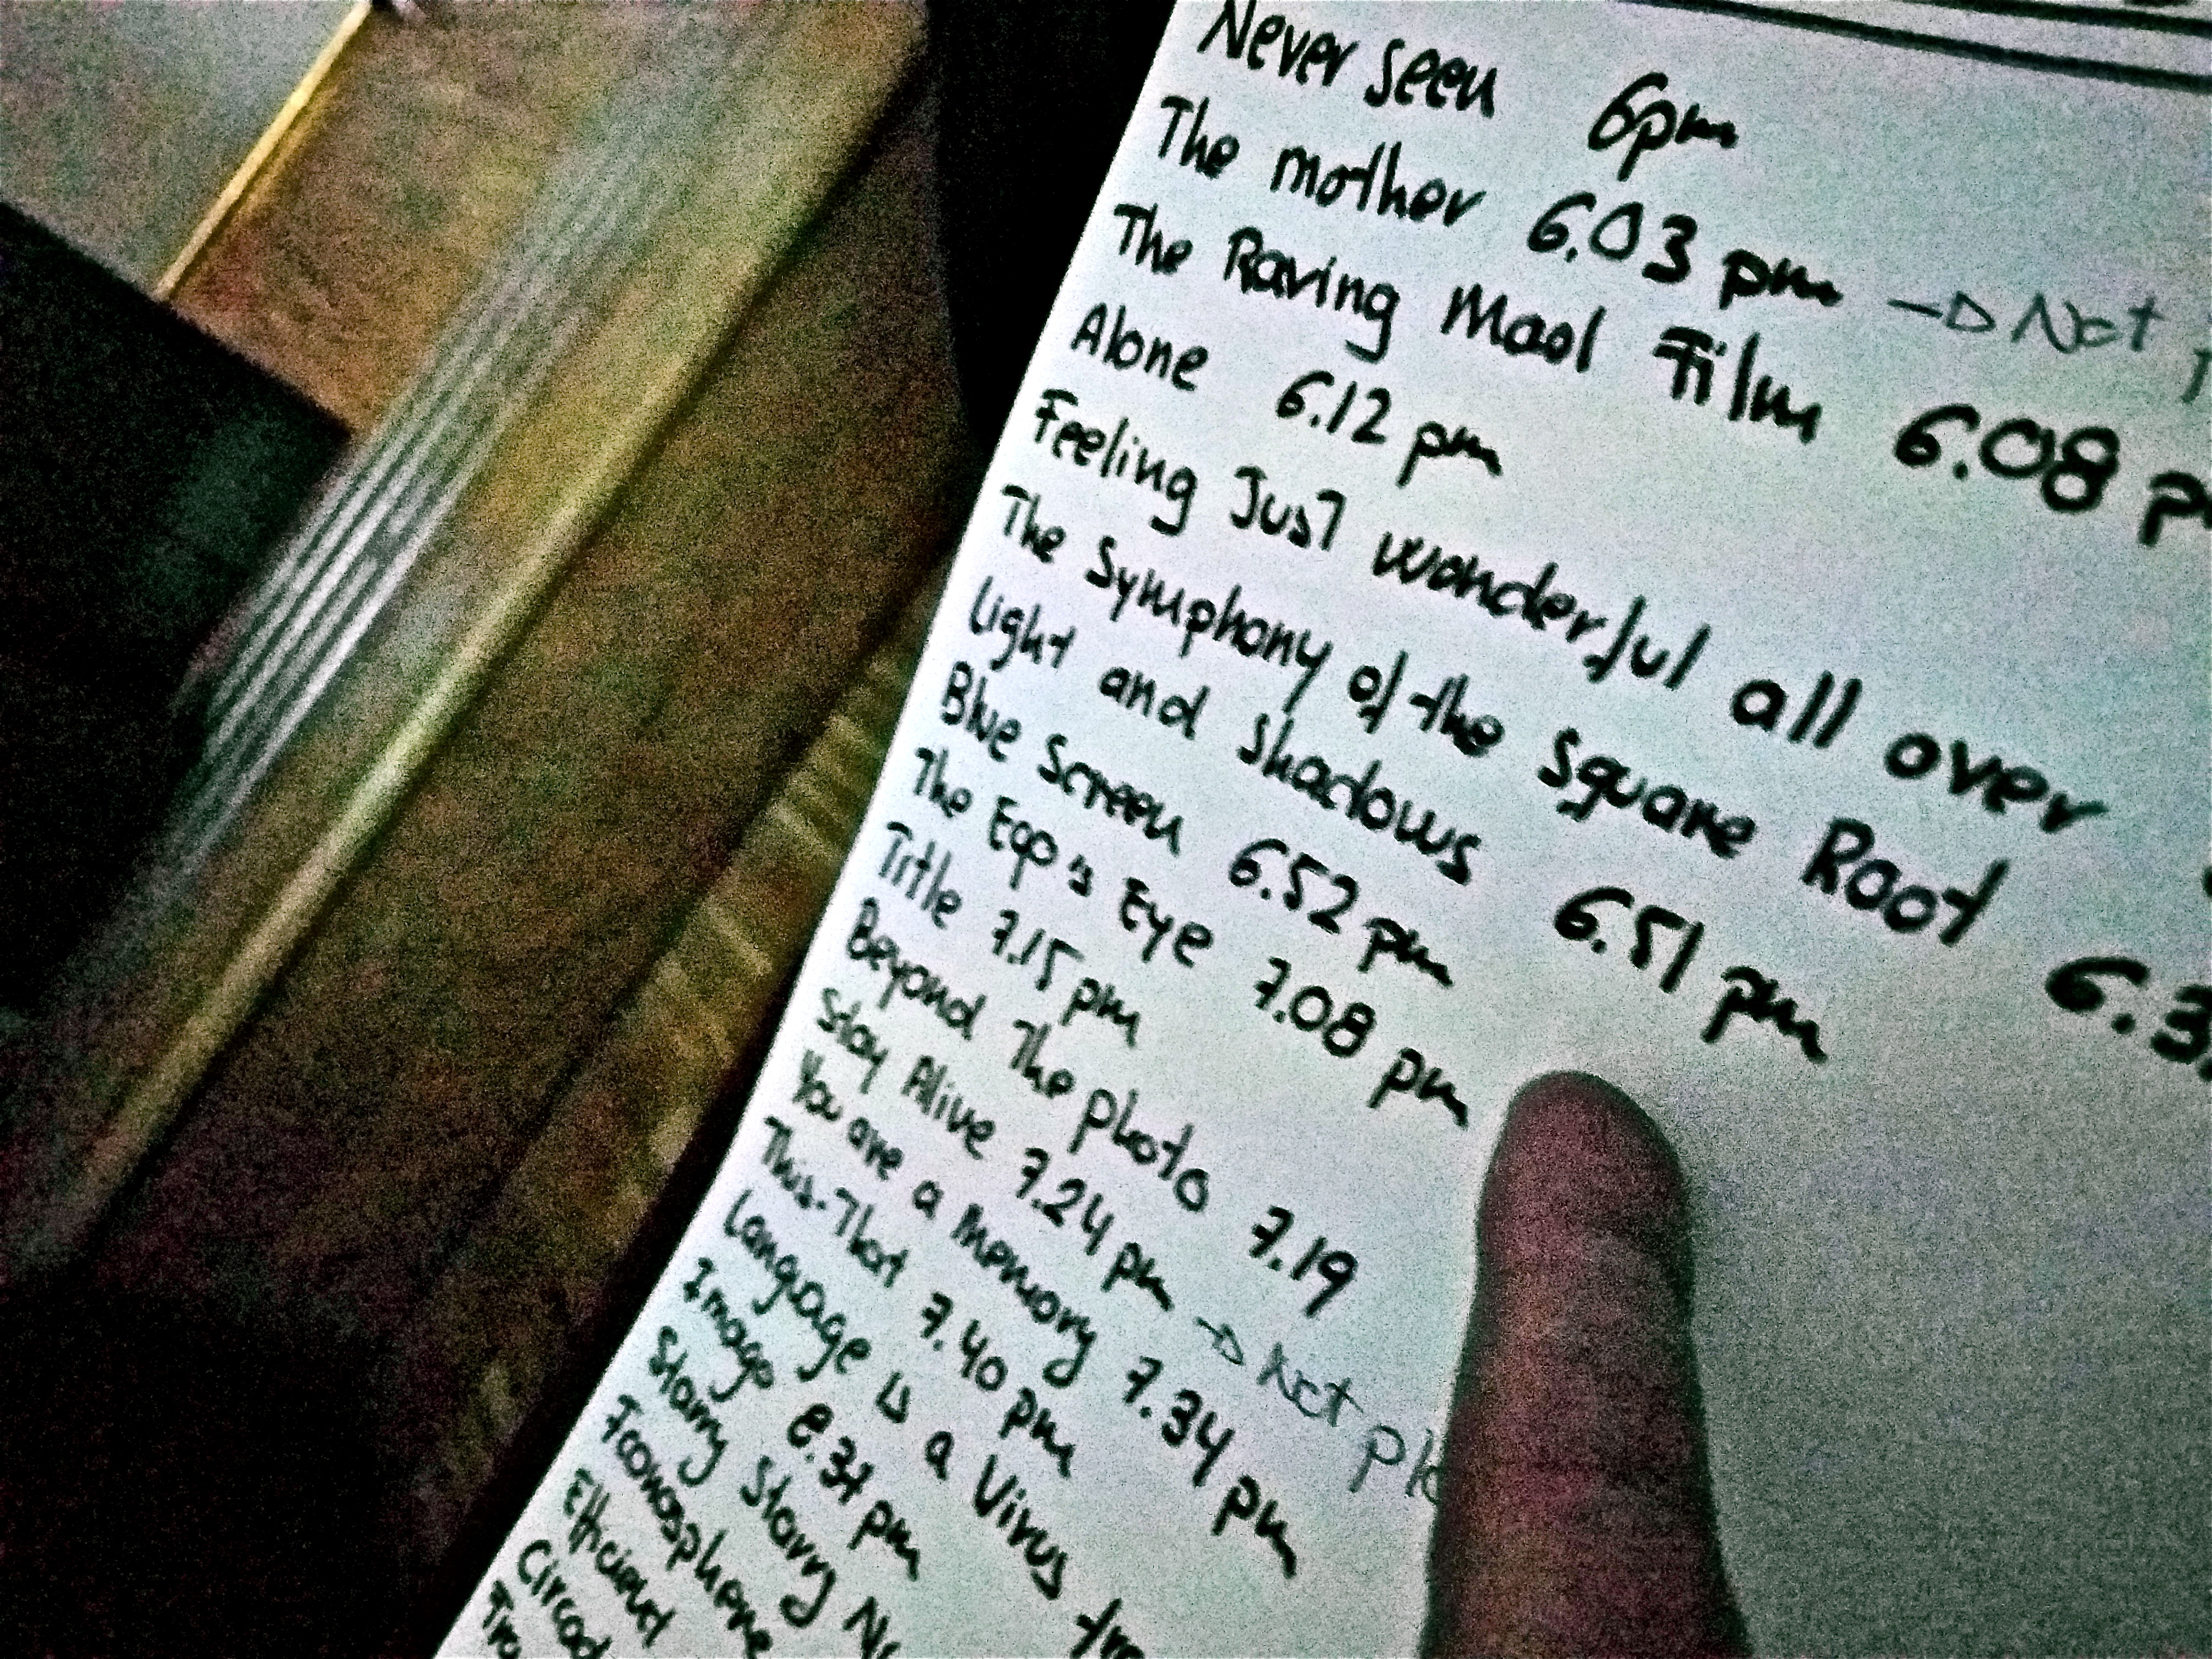 Never seen 6pm
The mother 6.03 pm → Not
The Raving Mad Film 6.08 p
Alone 6.12 pm
Feeling Just wonderful all over
The Symphony of the Square Root 6.3
Light and Shadows 6.51 pm
Blue Screen 6.52 pm
The Ego's Eye 7.08 pm
Title 7.15 pm
Beyond The photo 7.19
Stay Alive 7.24 pm → Not
You are a memory 7.34 pm
This-That 7.40 pm
Language is a Virus
Image 8.31 pm
Starry Starry
Efficient